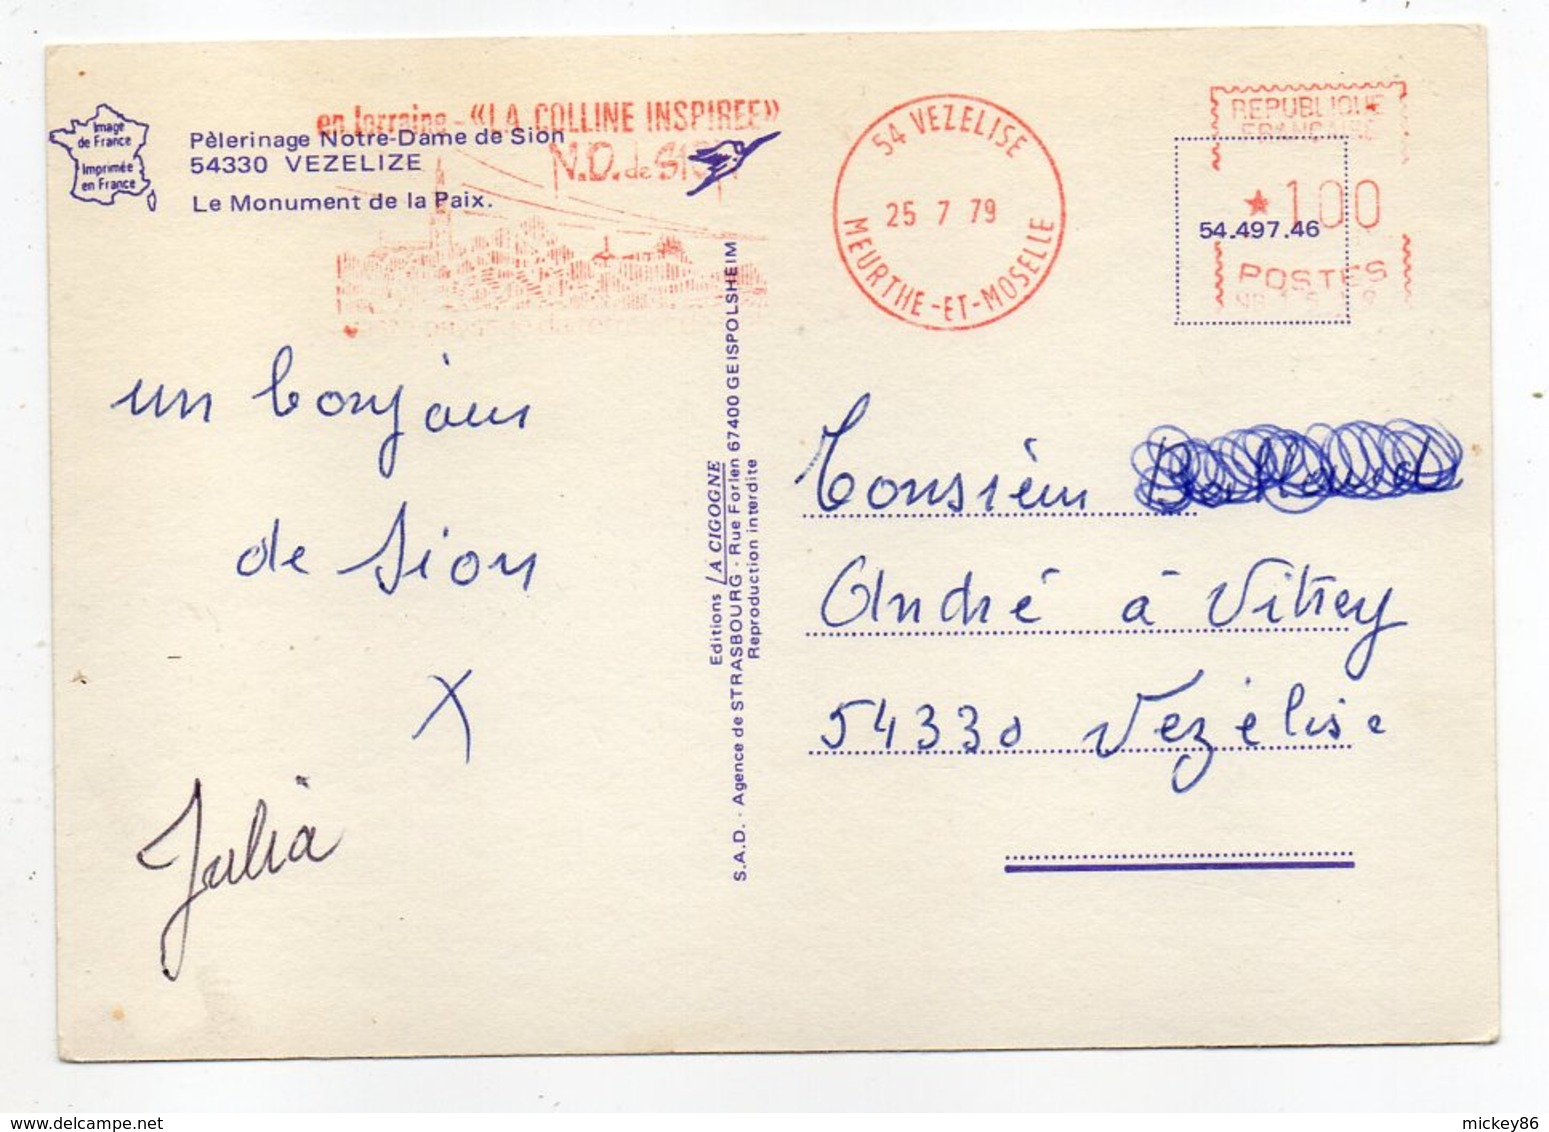 en lorraine - «LA COLLINE INSPIREE»
N.D. de SION
Image
de France
Imprimée
en France
Pèlerinage Notre-Dame de Sion
54330 VEZELIZE
Le Monument de la Paix.
54 VEZELISE
25 7 79
MEURTHE-ET-MOSELLE
REPUBLIQUE
FRANÇAISE
★100
POSTES
54.497.46
un bonjour
de Sion
X
Julia
Editions LA CIGOGNE
S.A.D. - Agence de STRASBOURG - Rue Forlen 67400 GEISPOLSHEIM
Reproduction interdite
Monsieur
André à Vitrey
54330 Vezélise
mickey86